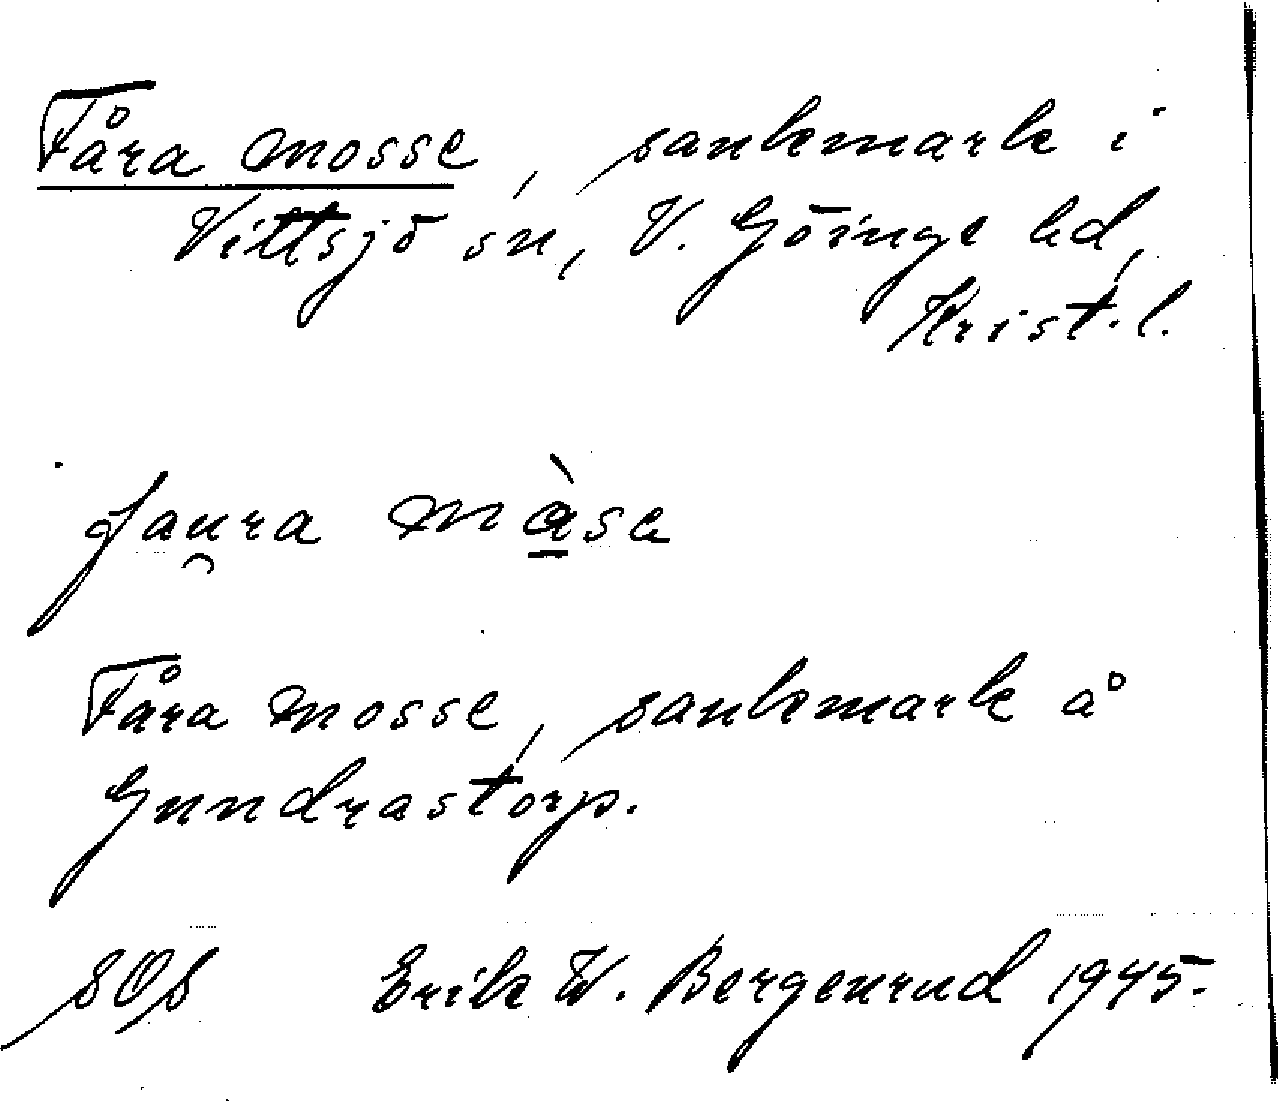 Fåra mosse, sankmark i
Vittsjö sn, V. Göinge hd,
Krist. l.
fau̯ra mà̱sa
Fåra mosse, sankmark å
Gundrastorp.
SOS Erik W. Bergenrud 1945.